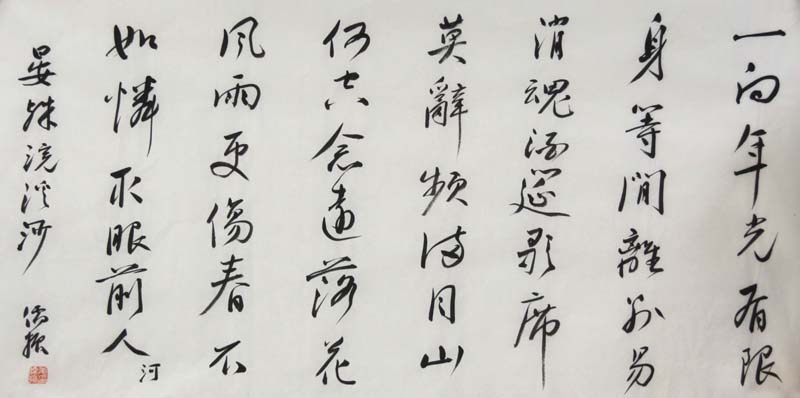 一向年光有限
身等閒離別易
消魂酒筵歌席
莫辭頻滿目山
何空念遠落花
風雨更傷春不
如憐取眼前人
河
晏殊浣溪沙